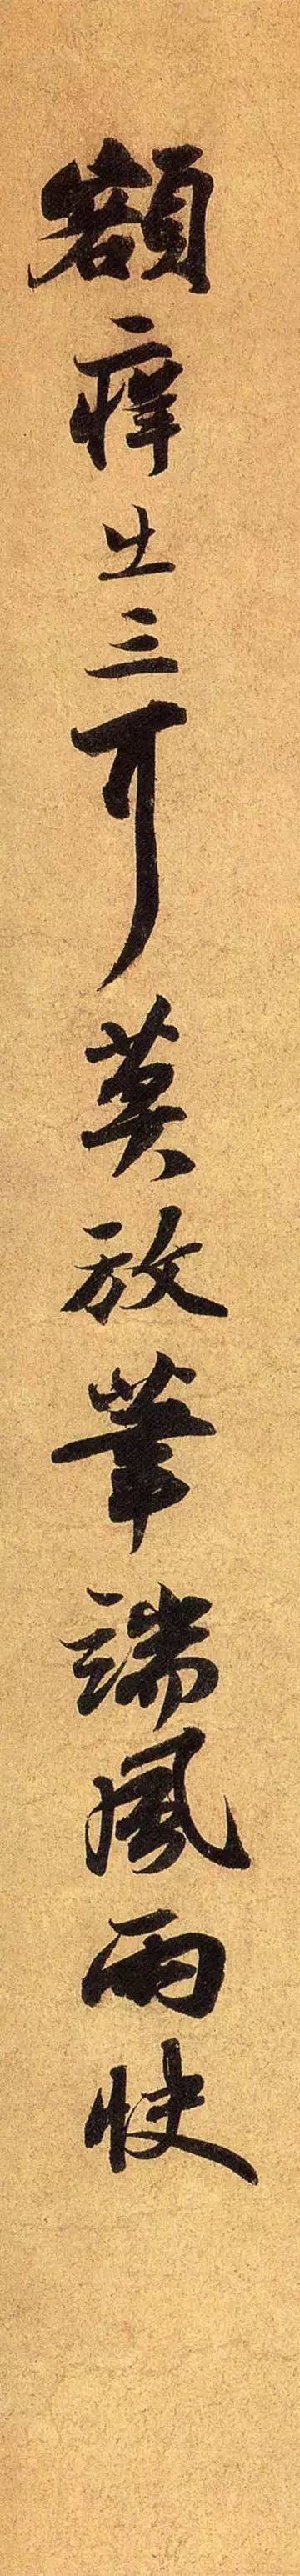 額痒止三可莫放筆端風雨快